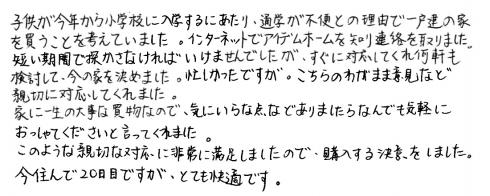 子供が今年から小学校に入学するにあたり、通学が不便との理由で一戸建の家
を買うことを考えていました。インターネットでアイデムホームを知り連絡を取りました。
短い期間で探かさなければいけませんでしたが、すぐに対応してくれ何軒も
検討して、今の家を決めました。忙しかったですが。こちらのわがまま意見など
親切に対応してくれました。
家に一生の大事な買物なので、気にいらな点などありましたらなんでも気軽に
おっしゃてくださいと言ってくれました。
このような親切な対応に非常に満足しましたので、購入する決意をしました。
今住んで20日目ですが、とても快適です。